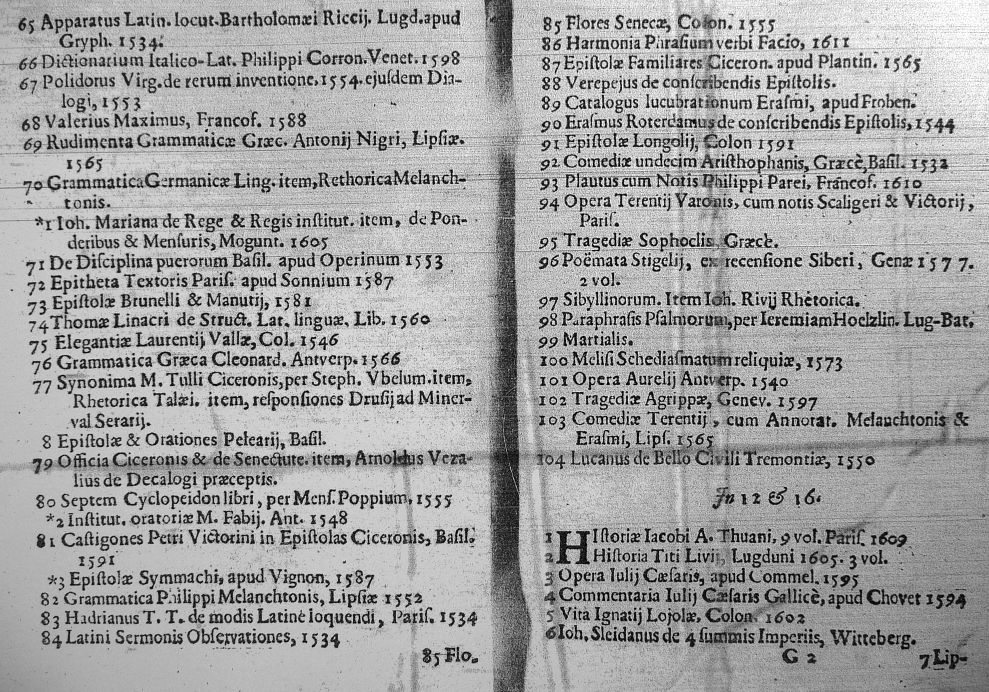 65 Apparatus Latin. locut. Bartholomæi Riccij. Lugd. apud
Gryph. 1534.
66 Dictionarium Italico-Lat. Philippi Corron. Venet. 1598
67 Polidorus Virg. de rerum inventione, 1554. ejusdem Dia-
logi, 1553
68 Valerius Maximus, Francof. 1588
69 Rudimenta Grammaticæ Græc. Antonij Nigri, Lipsiæ.
1565
70 Grammatica Germanicæ Ling. item, Rethorica Melanch-
tonis.
*1 Ioh. Mariana de Rege & Regis institut. item, de Pon-
deribus & Mensuris, Mogunt. 1605
71 De Disciplina puerorum Basil. apud Operinum 1553
72 Epitheta Textoris Paris. apud Sonnium 1587
73 Epistolæ Brunelli & Manutij, 1581
74 Thomæ Linacri de Struct. Lat. linguæ, Lib. 1560
75 Elegantiæ Laurentij Vallæ, Col. 1546
76 Grammatica Græca Cleonard. Antverp. 1566
77 Synonima M. Tulli Ciceronis, per Steph. Vbelum. item,
Rhetorica Talæi. item, responsiones Drusij ad Miner-
val Serarij.
8 Epistolæ & Orationes Pelearij, Basil.
79 Officia Ciceronis & de Senectute. item, Arnoldus Veza-
lius de Decalogi præceptis.
80 Septem Cyclopeidon libri, per Mens. Poppium, 1555
*2 Institut. oratoriæ M. Fabij. Ant. 1548
81 Castigones Petri Victorini in Epistolas Ciceronis, Basil.
1591
*3 Epistolæ Symmachi, apud Vignon, 1587
82 Grammatica Philippi Melanchtonis, Lipsiæ 1552
83 Hadrianus T. T. de modis Latinè loquendi, Paris. 1534
84 Latini Sermonis Observationes, 1534
85 Flo.
85 Flores Senecæ, Colon. 1555
86 Harmonia Phrasium verbi Facio, 1611
87 Epistolæ Familiares Ciceron. apud Plantin. 1565
88 Verepejus de conscribendis Epistolis.
89 Catalogus lucubrationum Erasmi, apud Froben.
90 Erasmus Roterdamus de conscribendis Epistolis, 1544
91 Epistolæ Longolij, Colon 1591
92 Comediæ undecim Aristhophanis, Græcè, Basil. 1532
93 Plautus cum Notis Philippi Parei, Francof. 1610
94 Opera Terentij Varonis, cum notis Scaligeri & Victorij,
Paris.
95 Tragediæ Sophoclis, Græcè.
96 Poëmata Stigelij, ex recensione Siberi, Genæ 1577.
2 vol.
97 Sibyllinorum. Item Ioh. Rivij Rhetorica.
98 Paraphrasis Psalmorum, per Ieremiam Hoelzlin. Lug-Bat.
99 Martialis.
100 Melisi Schediasmatum reliquiæ, 1573
101 Opera Aurelij Antverp. 1540
102 Tragediæ Agrippæ, Genev. 1597
103 Comediæ Terentij, cum Annotat. Melauchtonis &
Erasmi, Lips. 1565
104 Lucanus de Bello Civili Tremontiæ, 1550
In 12 & 16.
1 HIstoriæ Iacobi A. Thuani, 9 vol. Paris. 1609
2 Historia Titi Livij, Lugduni 1605. 3 vol.
3 Opera Iulij Cæsaris, apud Commel. 1595
4 Commentaria Iulij Cæsaris Gallicè, apud Chovet 1594
5 Vita Ignatij Lojolæ, Colon. 1602
6 Ioh. Sleidanus de 4 summis Imperiis, Witteberg.
G 2
7 Lip-